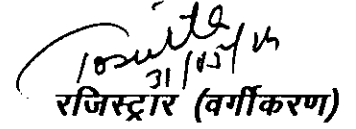 31/05/
रजिस्ट्रार (वर्गीकरण)